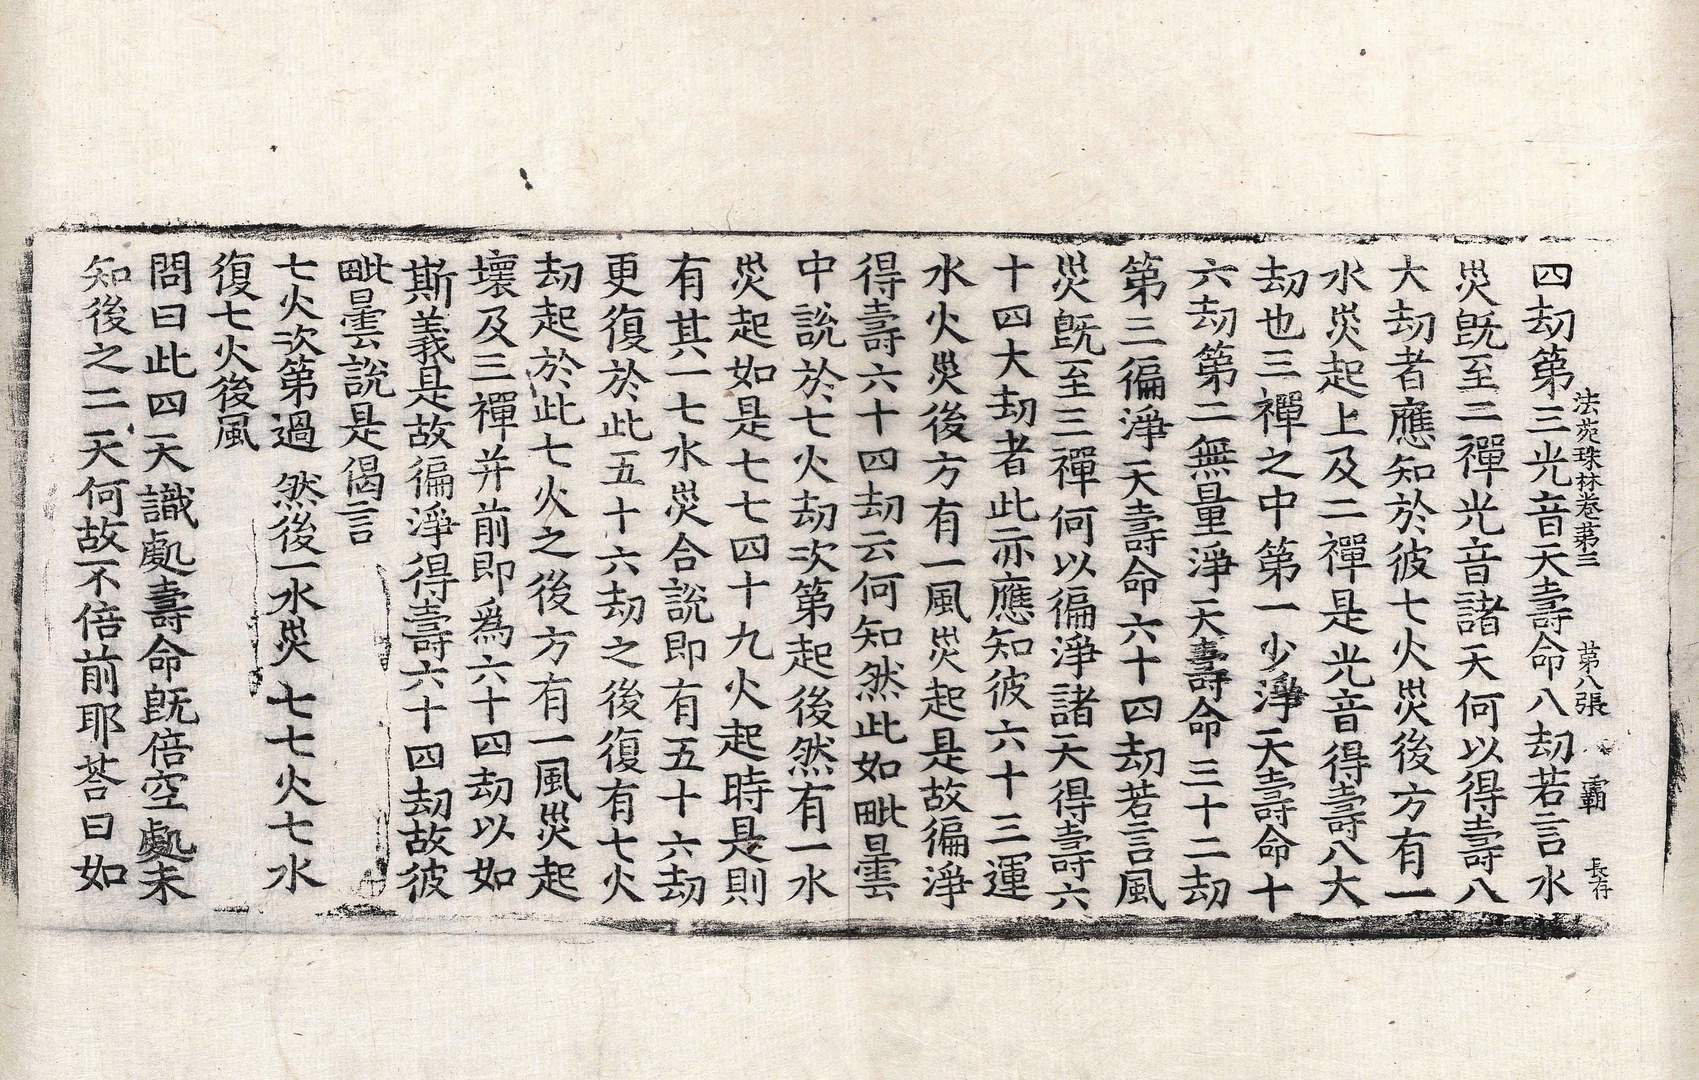 法苑珠林卷苐三 苐八張 霸 長存
四劫第三光音天壽命八劫若言水
災旣至二禪光音諸天何以得壽八
大劫者應知於彼七火災後方有一
水災起上及二禪是光音得壽八大
劫也三禪之中第一少淨天壽命十
六劫第二無量淨天壽命三十二劫
第三徧淨天壽命六十四劫若言風
災旣至三禪何以徧淨諸天得壽六
十四大劫者此亦應知彼六十三運
水火災後方有一風災起是故徧淨
得壽六十四劫云何知然此如毗曇
中說於七火劫次第起後然有一水
災起如是七七四十九火起時是則
有其一七水災合說即有五十六劫
更復於此五十六劫之後復有七火
劫起於此七火之後方有一風災起
壞及三禪并前即爲六十四劫以如
斯義是故徧淨得壽六十四劫故彼
毗曇說是偈言
七火次第過 然後一水災 七七火七水
復七火後風
問曰此四天識處壽命旣倍空處未
知後之二天何故不倍前耶荅曰如